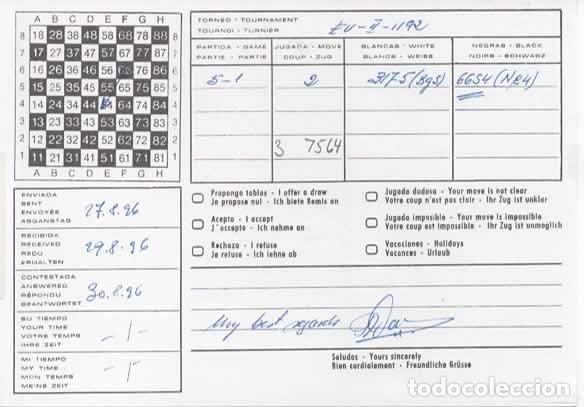 A B C D E F G H
8 18 28 38 48 58 68 78 88 8
7 17 27 37 47 57 67 77 87 7
6 16 26 36 46 56 66 76 86 6
5 15 25 35 45 55 65 75 85 5
4 14 24 34 44 54 64 74 84 4
3 13 23 33 43 53 63 73 83 3
2 12 22 32 42 52 62 72 82 2
1 11 21 31 41 51 61 71 81 1
A B C D E F G H
TORNEO - TOURNAMENT
TOURNOI - TURNIER
EU-II-1192
PARTIDA - GAME
PARTIE - PARTIE
JUGADA - MOVE
COUP - ZUG
BLANCAS - WHITE
BLANCS - WEISS
NEGRAS - BLACK
NOIRS - SCHWARZ
5-1 2 3175 (Bg5) 6654 (Ne4)
3 7564
ENVIADA
SENT
ENVOYÉE
ABGANSTAG
27.8.96
RECIBIDA
RECEIVED
REÇU
ERHALTEN
29.8.96
CONTESTADA
ANSWERED
RÉPONDU
BEANTWORTET
30.8.96
SU TIEMPO
YOUR TIME
VOTRE TEMPS
IHRE ZEIT
- 1 -
MI TIEMPO
MY TIME
MON TEMPS
MEINE ZEIT
- 1 -
Propongo tablas - I offer a draw
Je propose nul - Ich biete Remis an
Acepto - I accept
J'accepte - Ich nehme an
Rechazo - I refuse
Je refuse - Ich lehne ab
Jugada dudosa - Your move is not clear
Votre coup n'est pas clair - Ihr Zug ist unklar
Jugada imposible - Your move is impossible
Votre coup est impossible - Ihr Zug ist unmoglich
Vacaciones - Holidays
Vacances - Urlaub
My best regards
Saludos - Yours sincerely
Bien cordialement - Freundliche Grüsse
todocoleccion